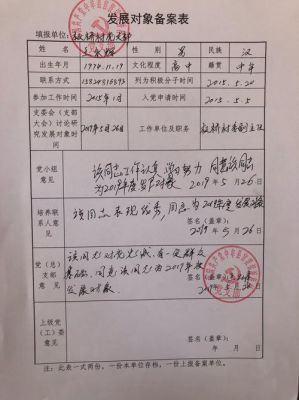 发展对象备案表
填报单位：
姓 名 性 别 男 民族 汉
出生年月 1974.11.19 文化程度 高中 籍贯 中牟
联系方式 列为积极分子时间 2015.5.20
参加工作时间 2015年1月 入党申请时间
支委会（支部大会）讨论研究发展对象时间 2019年5月26日 工作单位及职务
党小组意见
该同志工作认真 学习努力 同意该同志
为2019年度发展对象 2019年5月26
培养联系人意见
该同志表现优秀，同意为2019年度发展对象
签名（盖章）：
2019年5月26日
党（总）支部意见
该同志对党忠诚，有一定群众
基础，同意该同志为2019年度
发展对象。
签名（盖章）：
2019年5月26日
上级党（工）委意见
签名（盖章）：
年 月 日
注：此表一式两份，一份本单位存档，一份上报备案单位。